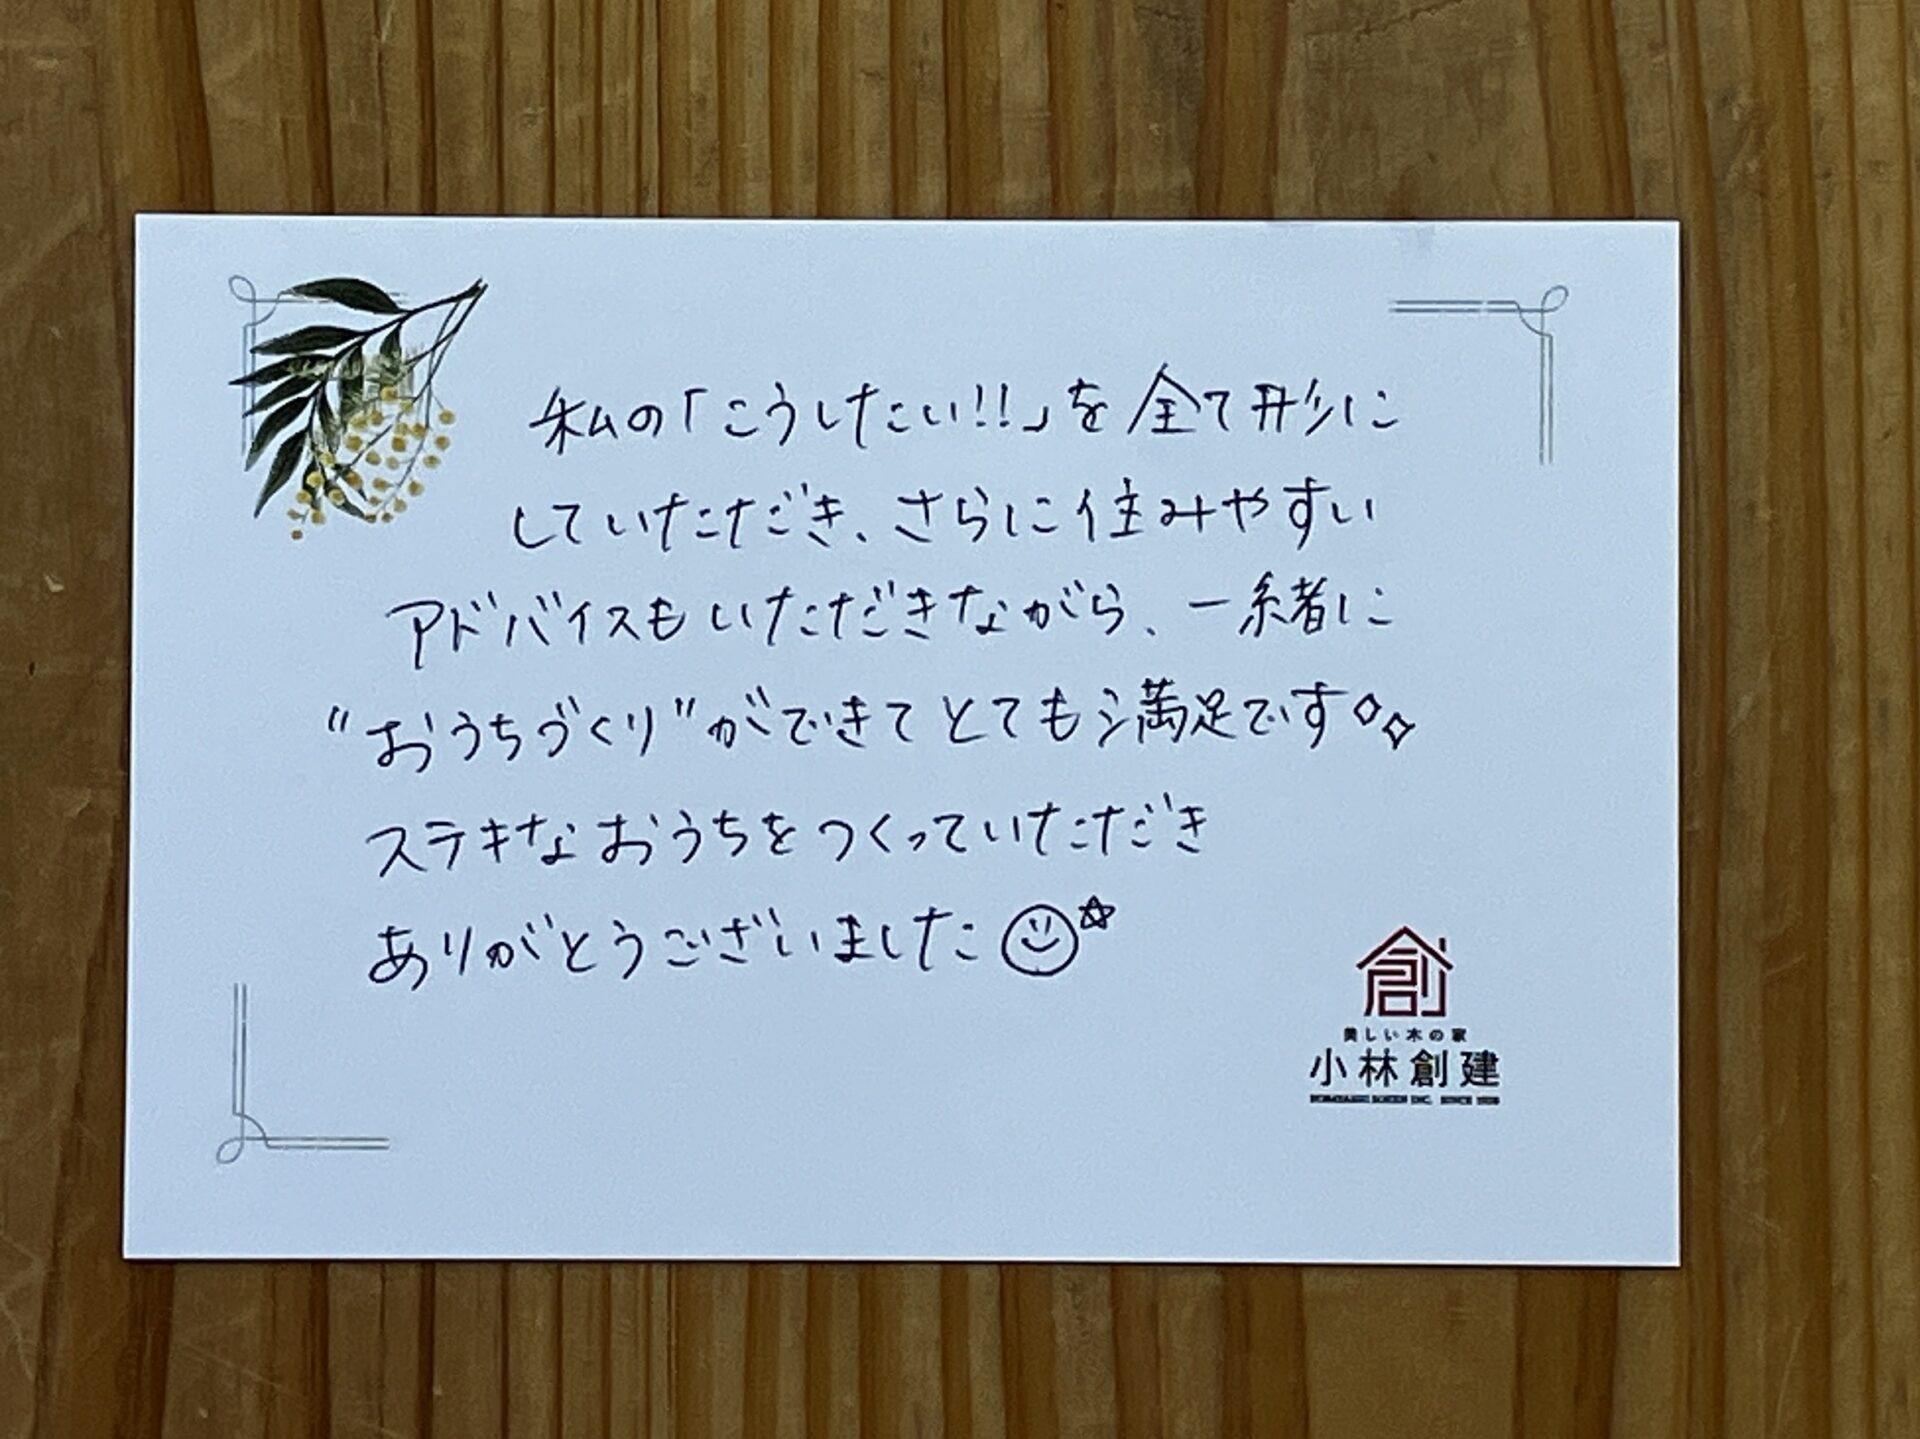 私の「こうしたい!!」を全て形に
していただき、さらに住みやすい
アドバイスもいただきながら、一緒に
"おうちづくり"ができてとても満足です
ステキなおうちをつくっていただき
ありがとうございました
創
美しい木の家
小林創建
KOBAYASHI SOKEN INC. SINCE